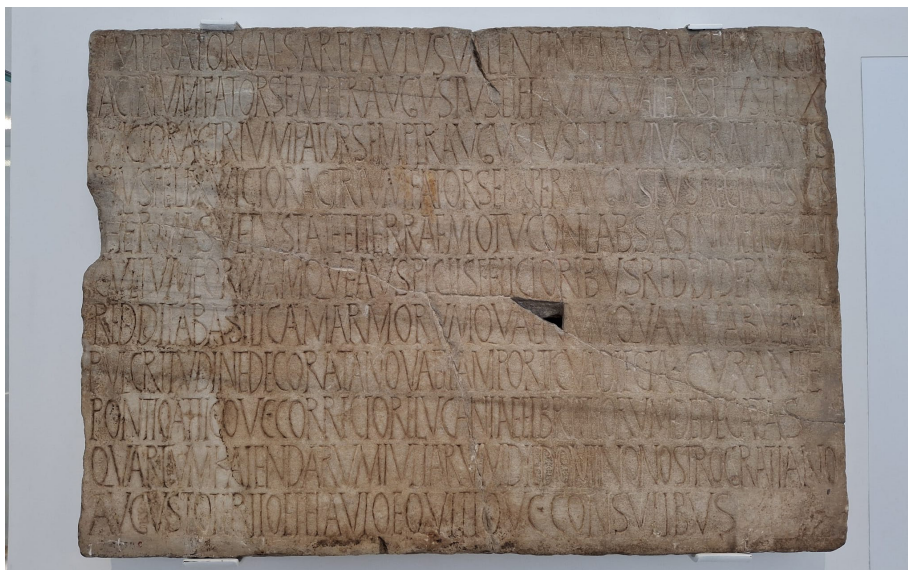 IMPERATOR CAESAR FLAVIVS VALENTINIANVS PIVS FELIX VICTOR
AC TRIVMFATOR SEMPER AVGVSTVS ET FLAVIVS VALENS PIVS FELIX
VICTOR AC TRIVMFATOR SEMPER AVGVSTVS ET FLAVIVS GRATIANVS
PIVS FELIX VICTOR AC TRIVMFATOR SEMPER AVGVSTVS
THERMAS VETVSTATE ET TERRAE MOTV CONLABSAS IN MELIOREM
CVLTVM FORMAMQVE AVSPICIIS FELICIORIBVS REDDIDERVNT
REDDITA BASILICA MARMORVM HABVERAT
PVLCRITVDINE DECORATA NOVA ETIAM PORTICV ADIECTA CVRANTE
PONTIO ATTICO V C CORRECTOR LVCANIAE ET BRITTIORVM
QVARTVM KALENDARVM IVLIARVM DIE DOMINO NOSTRO GRATIANO
AVGVSTO TERTIO ET FLAVIO EQVITIO V C CONSVLIBVS